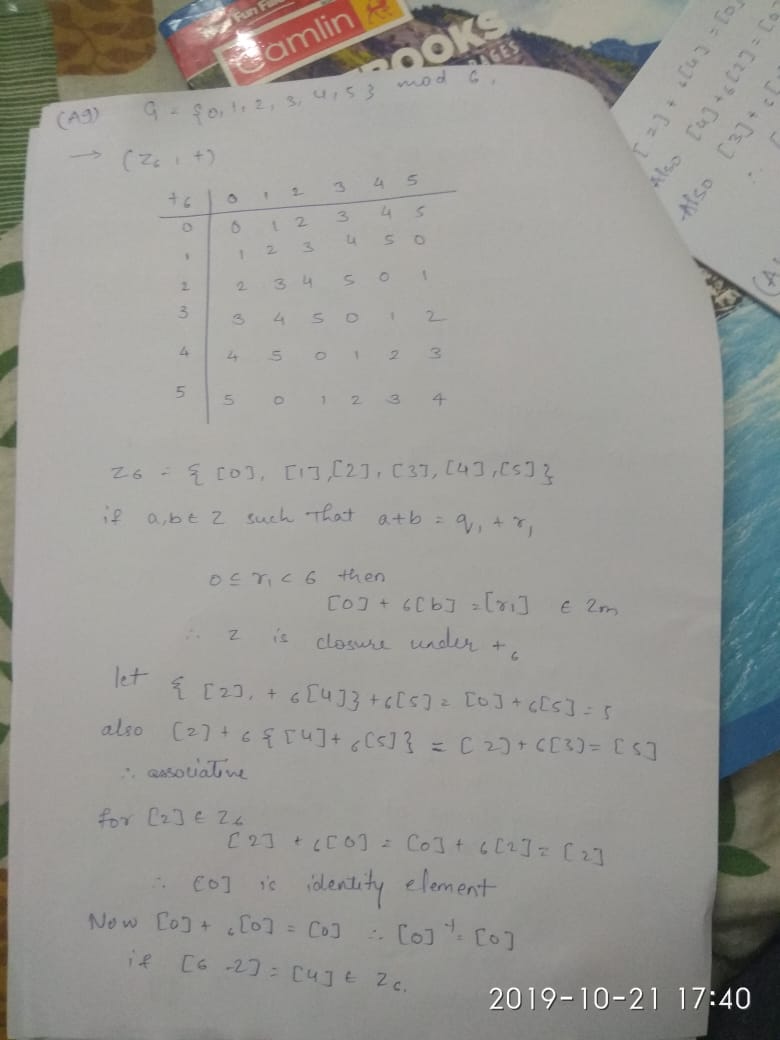 Fun
Camlin
BOOKS
PAGES
(A9) G = {0, 1, 2, 3, 4, 5} mod 6.
→ (Z6, +)
+6 0 1 2 3 4 5
0 0 1 2 3 4 5
1 1 2 3 4 5 0
2 2 3 4 5 0 1
3 3 4 5 0 1 2
4 4 5 0 1 2 3
5 5 0 1 2 3 4
Z6 = {[0], [1], [2], [3], [4], [5]}
if a, b ∈ Z such that a+b = q1 + r1
0 ≤ r1 < 6 then
[0] +6 [b] = [r1] ∈ Zm
∴ Z is closure under +6
let {[2], +6 [4]} +6 [5] = [0] +6 [5] = 5
also [2] +6 {[4] +6 [5]} = [2] +6 [3] = [5]
∴ associative
for [2] ∈ Z6
[2] +6 [0] = [0] +6 [2] = [2]
∴ [0] is identity element
Now [0] +6 [0] = [0] ∴ [0]-1 = [0]
if [6-2] = [4] ∈ Z6.
[2] +6 [4] = [0]
Also [4] +6 [2] =
Also [3] +6
2019-10-21 17:40